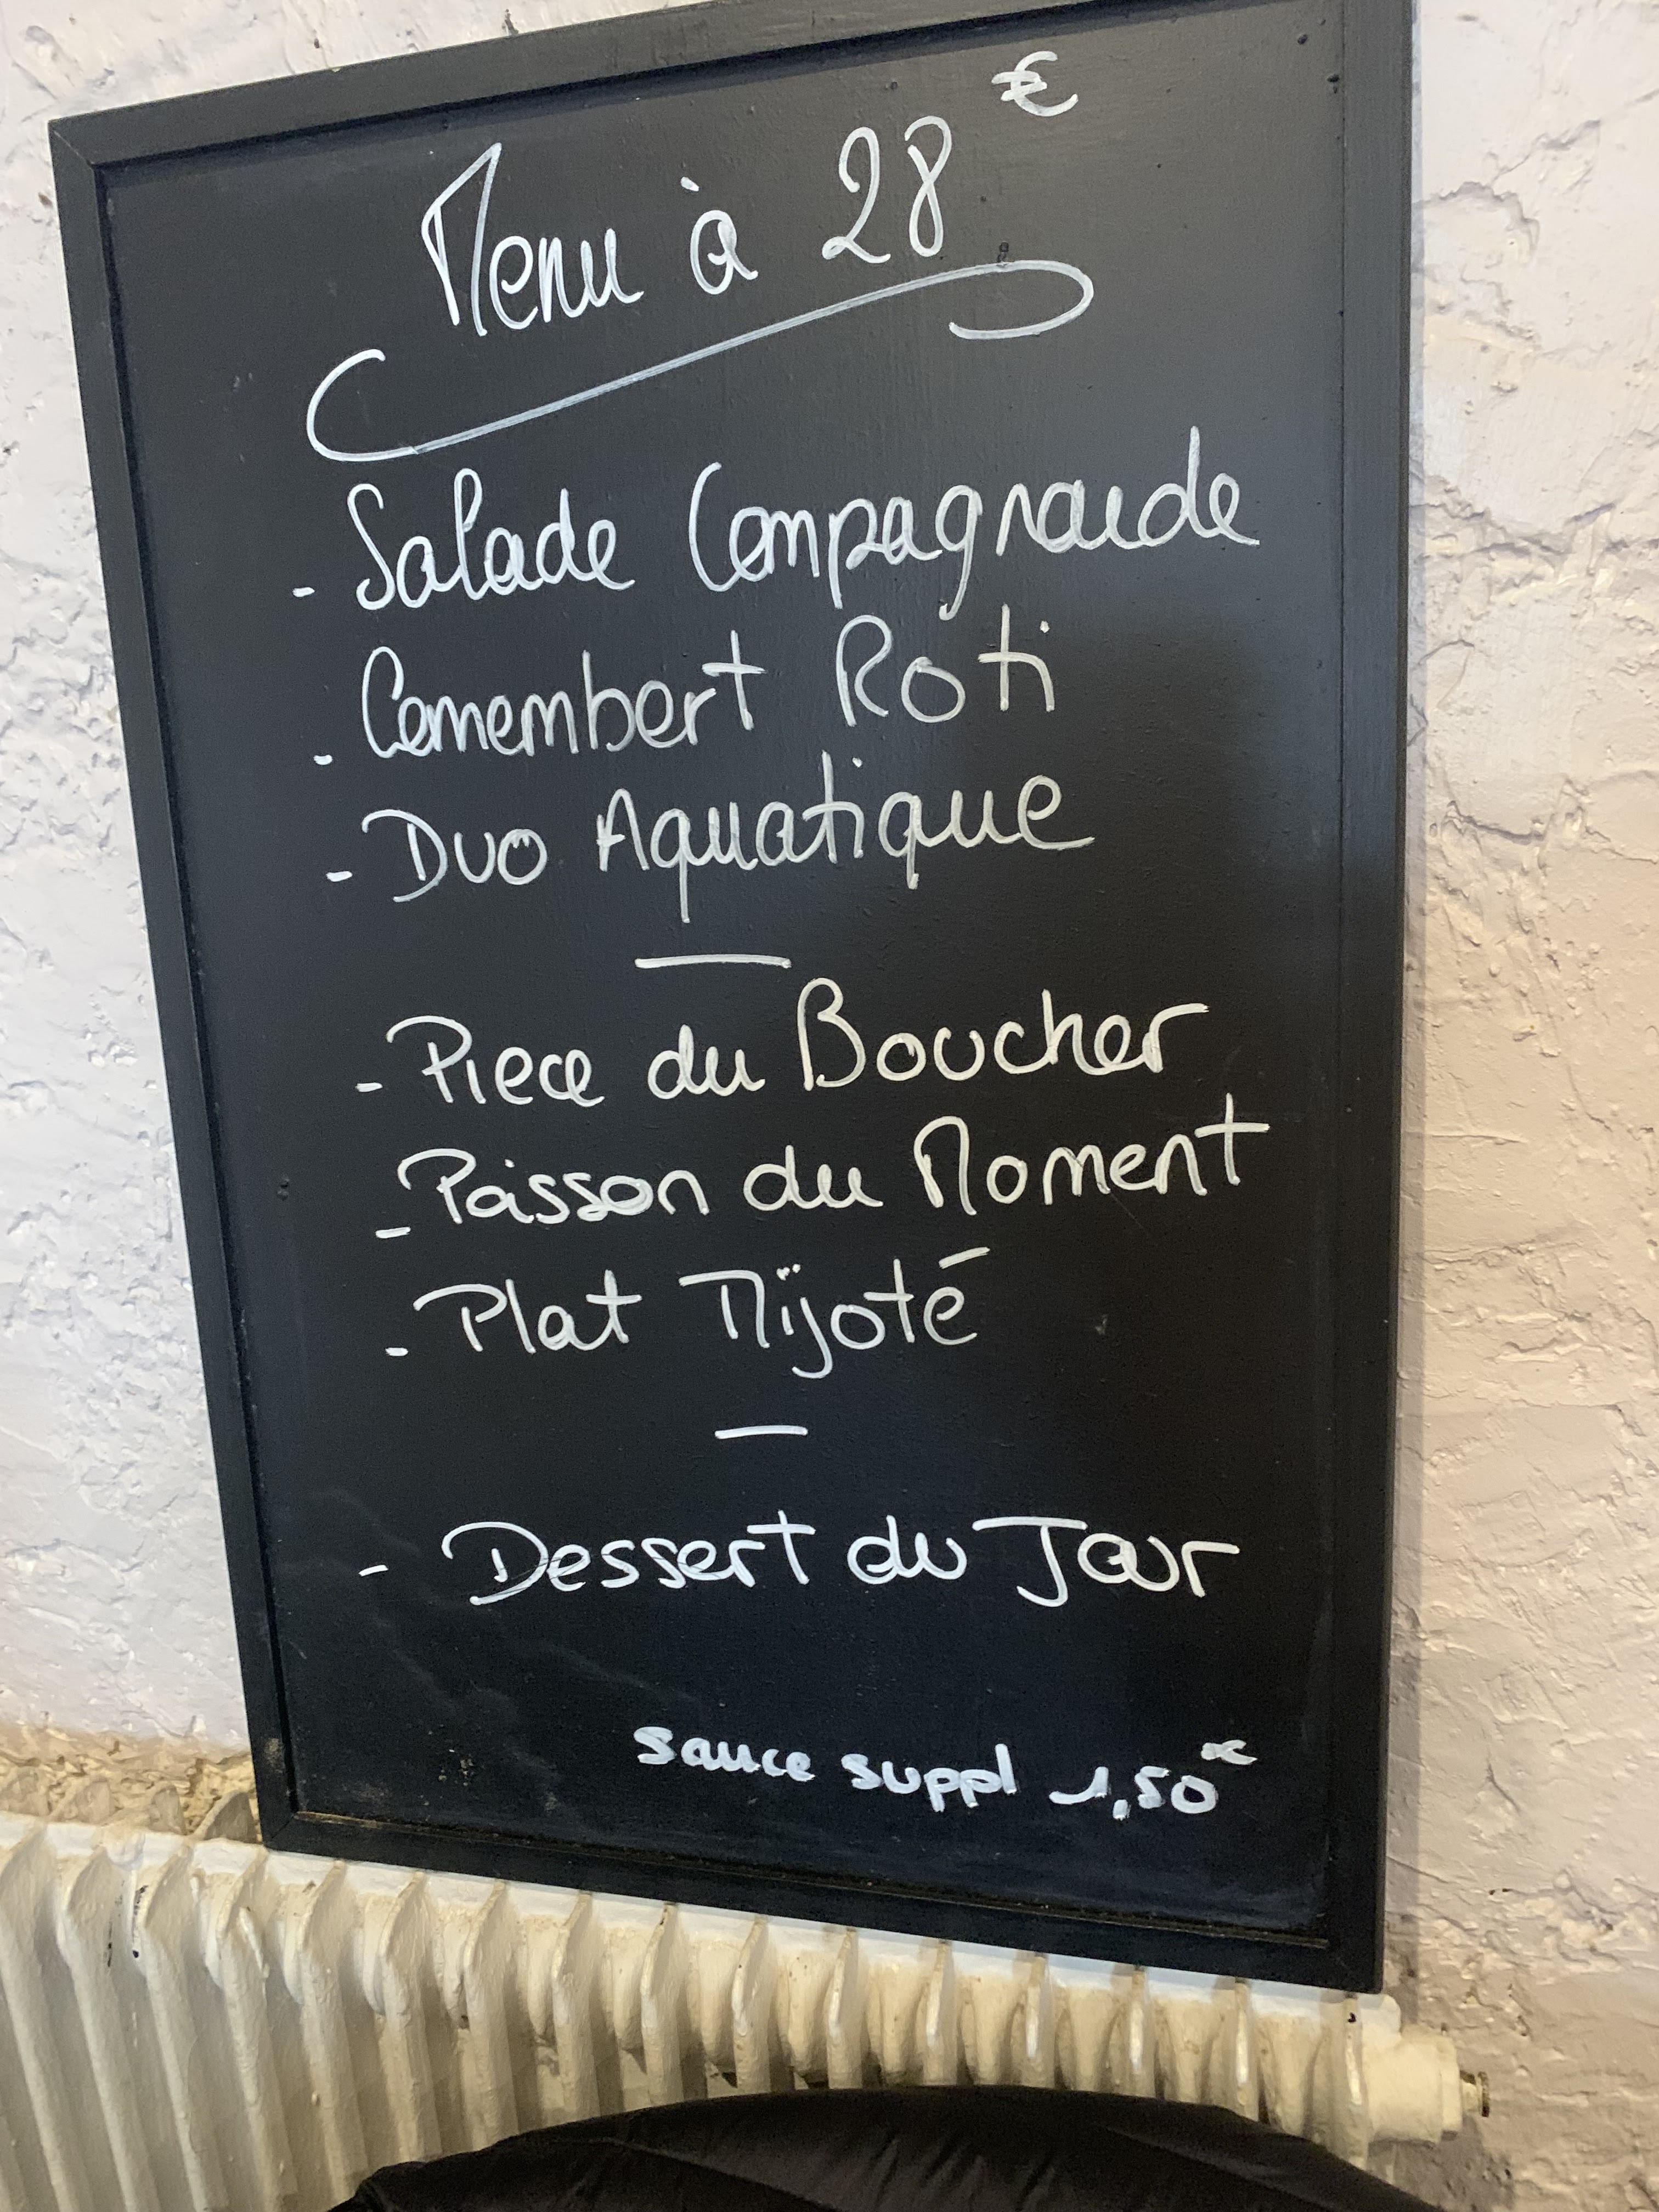 Menu à 28 €
- Salade Campagnarde
- Camembert Roti
- Duo Aquatique
- Piece du Boucher
- Poisson du Moment
- Plat Mijoté
- Dessert du Jour
sauce suppl 1,50€